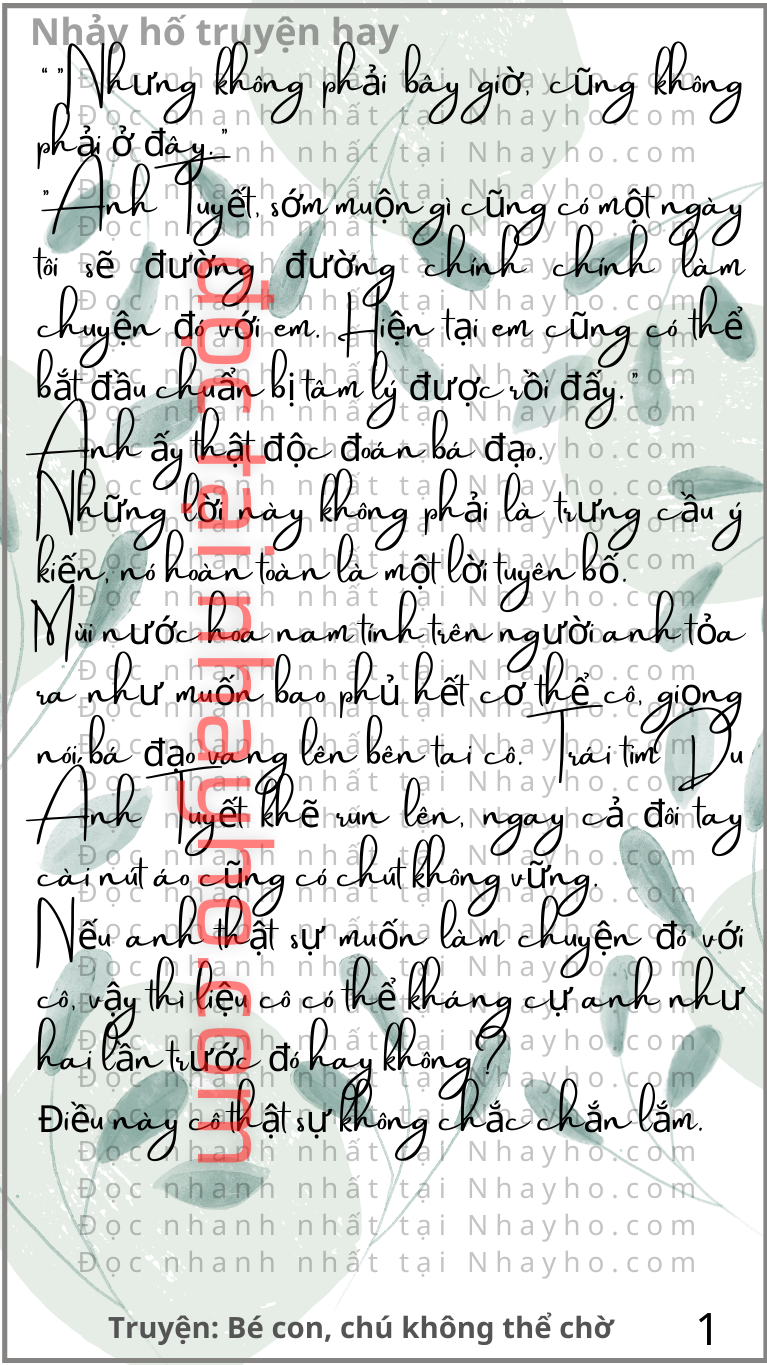 Nhảy hố truyện hay
“ ”Nhưng không phải bây giờ, cũng không
phải ở đây.”
”Anh Tuyết, sớm muộn gì cũng có một ngày
tôi sẽ đường đường chính chính làm
chuyện đó với em. Hiện tại em cũng có thể
bắt đầu chuẩn bị tâm lý được rồi đấy.”
Anh ấy thật độc đoán bá đạo.
Những lời này không phải là trưng cầu ý
kiến, nó hoàn toàn là một lời tuyên bố.
Mùi nước hoa nam tính trên người anh tỏa
ra như muốn bao phủ hết cơ thể cô, giọng
nói bá đạo vang lên bên tai cô. Trái tim Du
Anh Tuyết khẽ run lên, ngay cả đôi tay
cài nút áo cũng có chút không vững.
Nếu anh thật sự muốn làm chuyện đó với
cô, vậy thì liệu cô có thể kháng cự anh như
hai lần trước đó hay không?
Điều này cô thật sự không chắc chắn lắm.
đọc tại nhayho.com
Đọc nhanh nhất tại Nhayho.com
Đọc nhanh nhất tại Nhayho.com
Đọc nhanh nhất tại Nhayho.com
Đọc nhanh nhất tại Nhayho.com
Truyện: Bé con, chú không thể chờ
1